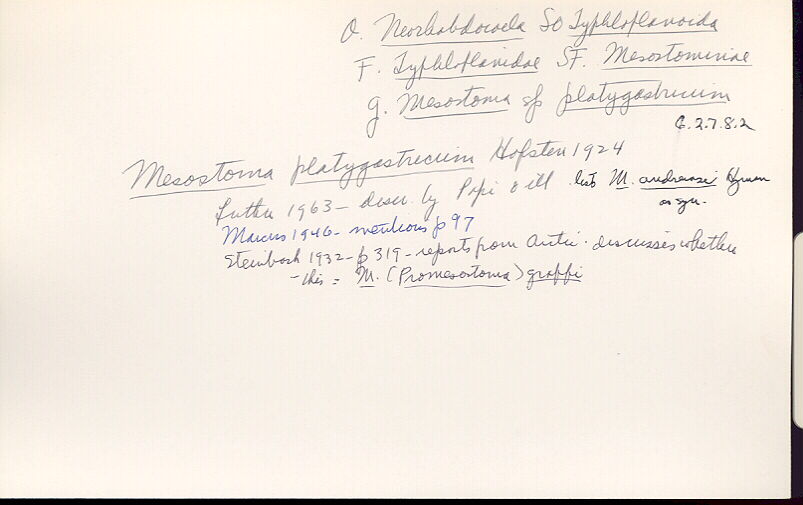 O. Neorhabdocoela SO Typhloplanoida
F. Typhloplanidae SF. Mesostominae
g. Mesostoma sp platygastricum
6.2.7.8.2
Mesostoma platygastricum Hofsten 1924
Luther 1963 - descr. by Papi & ill. lists M. andrewsi Hyman
as syn.
Marcus 1946 - mentions p 97
Steinbock 1932 - p 319 - reports from Arctic. discusses whether
- this = M. (Promesostoma) graffi